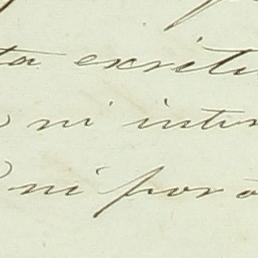 ta exriti
ni inter
ni por o